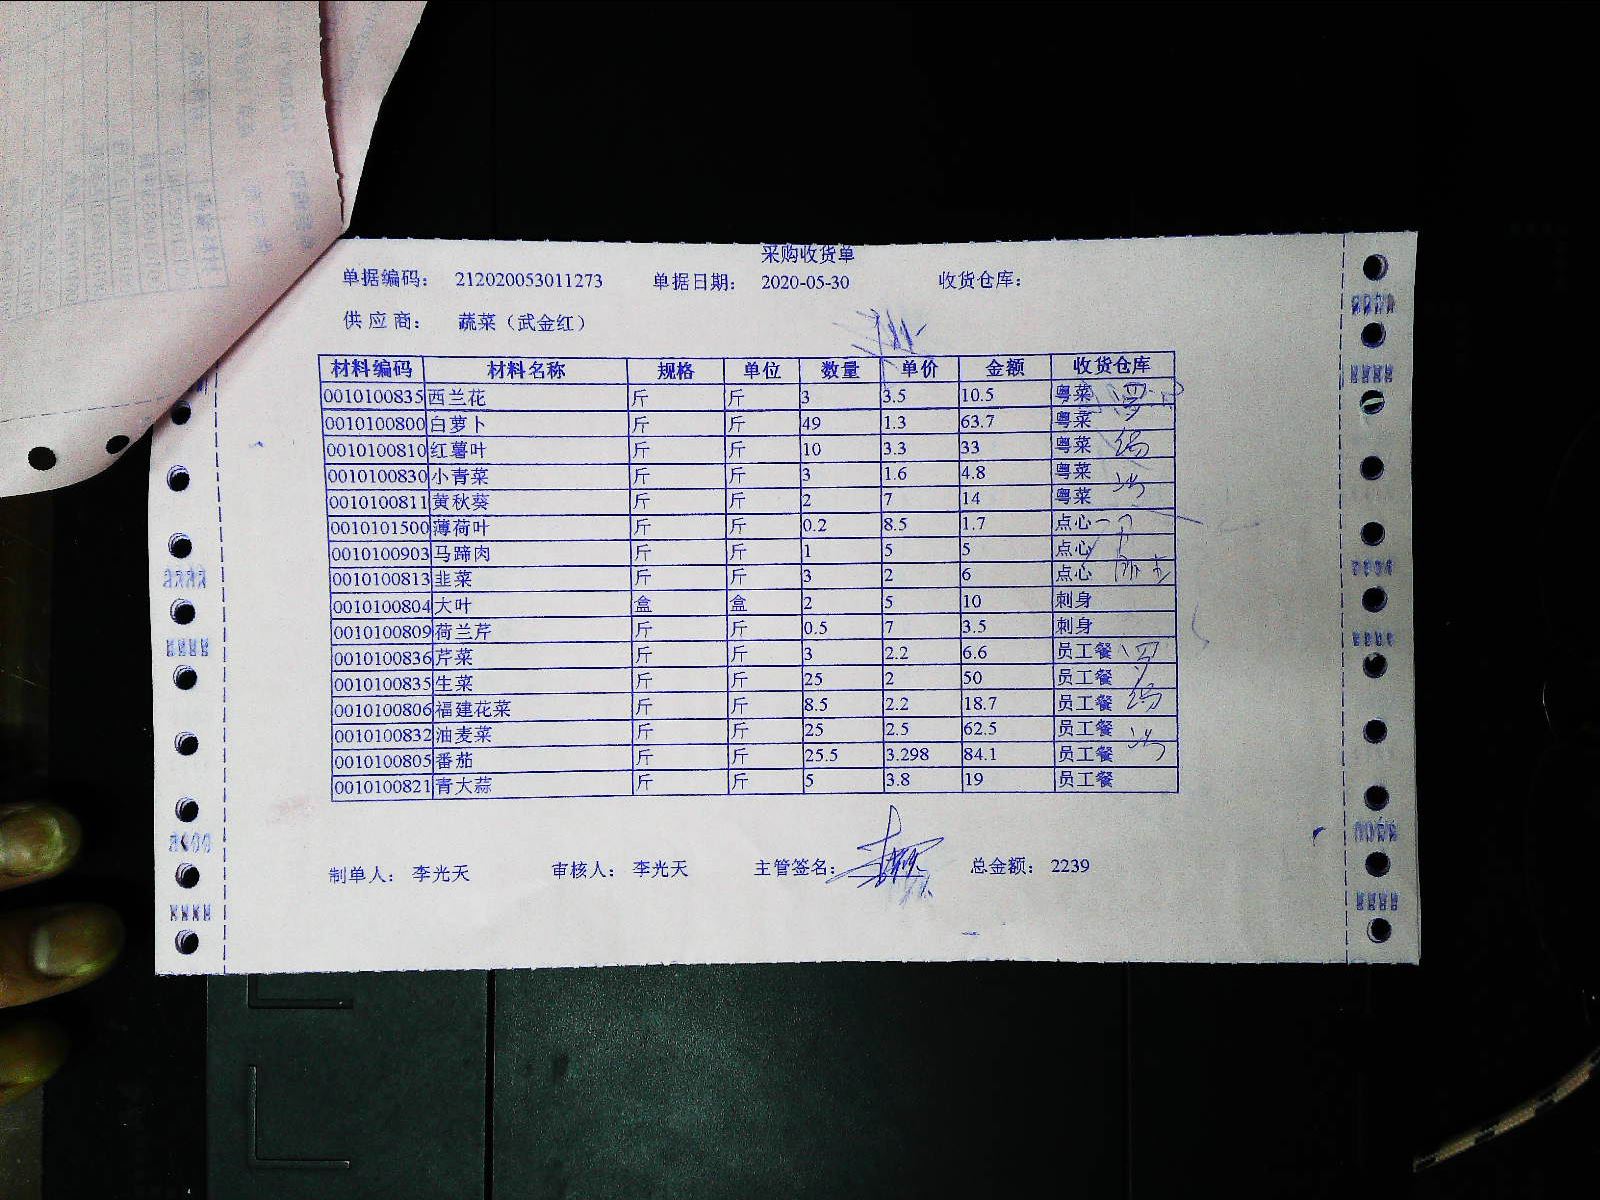 采购收货单
单据编码： 212020053011273 单据日期： 2020-05-30 收货仓库：
供应商： 蔬菜（武金红）
材料编码 材料名称 规格 单位 数量 单价 金额 收货仓库
0010100835 西兰花 斤 斤 3 3.5 10.5 粤菜
0010100800 白萝卜 斤 斤 49 1.3 63.7 粤菜
0010100810 红薯叶 斤 斤 10 3.3 33 粤菜
0010100830 小青菜 斤 斤 3 1.6 4.8 粤菜
0010100811 黄秋葵 斤 斤 2 7 14 粤菜
0010101500 薄荷叶 斤 斤 0.2 8.5 1.7 点心
0010100903 马蹄肉 斤 斤 1 5 5 点心
0010100813 韭菜 斤 斤 3 2 6 点心
0010100804 大叶 盒 盒 2 5 10 刺身
0010100809 荷兰芹 斤 斤 0.5 7 3.5 刺身
0010100836 芹菜 斤 斤 3 2.2 6.6 员工餐
0010100835 生菜 斤 斤 25 2 50 员工餐
0010100806 福建花菜 斤 斤 8.5 2.2 18.7 员工餐
0010100832 油麦菜 斤 斤 25 2.5 62.5 员工餐
0010100805 番茄 斤 斤 25.5 3.298 84.1 员工餐
0010100821 青大蒜 斤 斤 5 3.8 19 员工餐
制单人： 李光天 审核人： 李光天 主管签名： 总金额： 2239